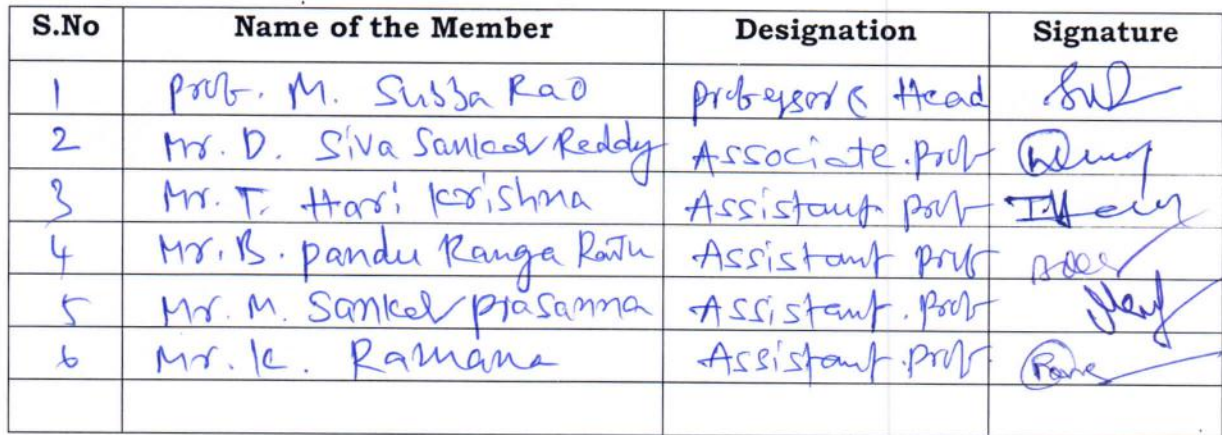 S.No Name of the Member Designation Signature
1 Prof. M. Subba Rao Professor & Head
2 Mr. D. Siva Sankar Reddy Associate.Prof
3 Mr. T. Hari Krishna Assistant Prof
4 Mr. B. Pandu Ranga Raju Assistant Prof
5 Mr. M. Sankar Prasanna Assistant.Prof
6 Mr. K. Ramana Assistant.Prof